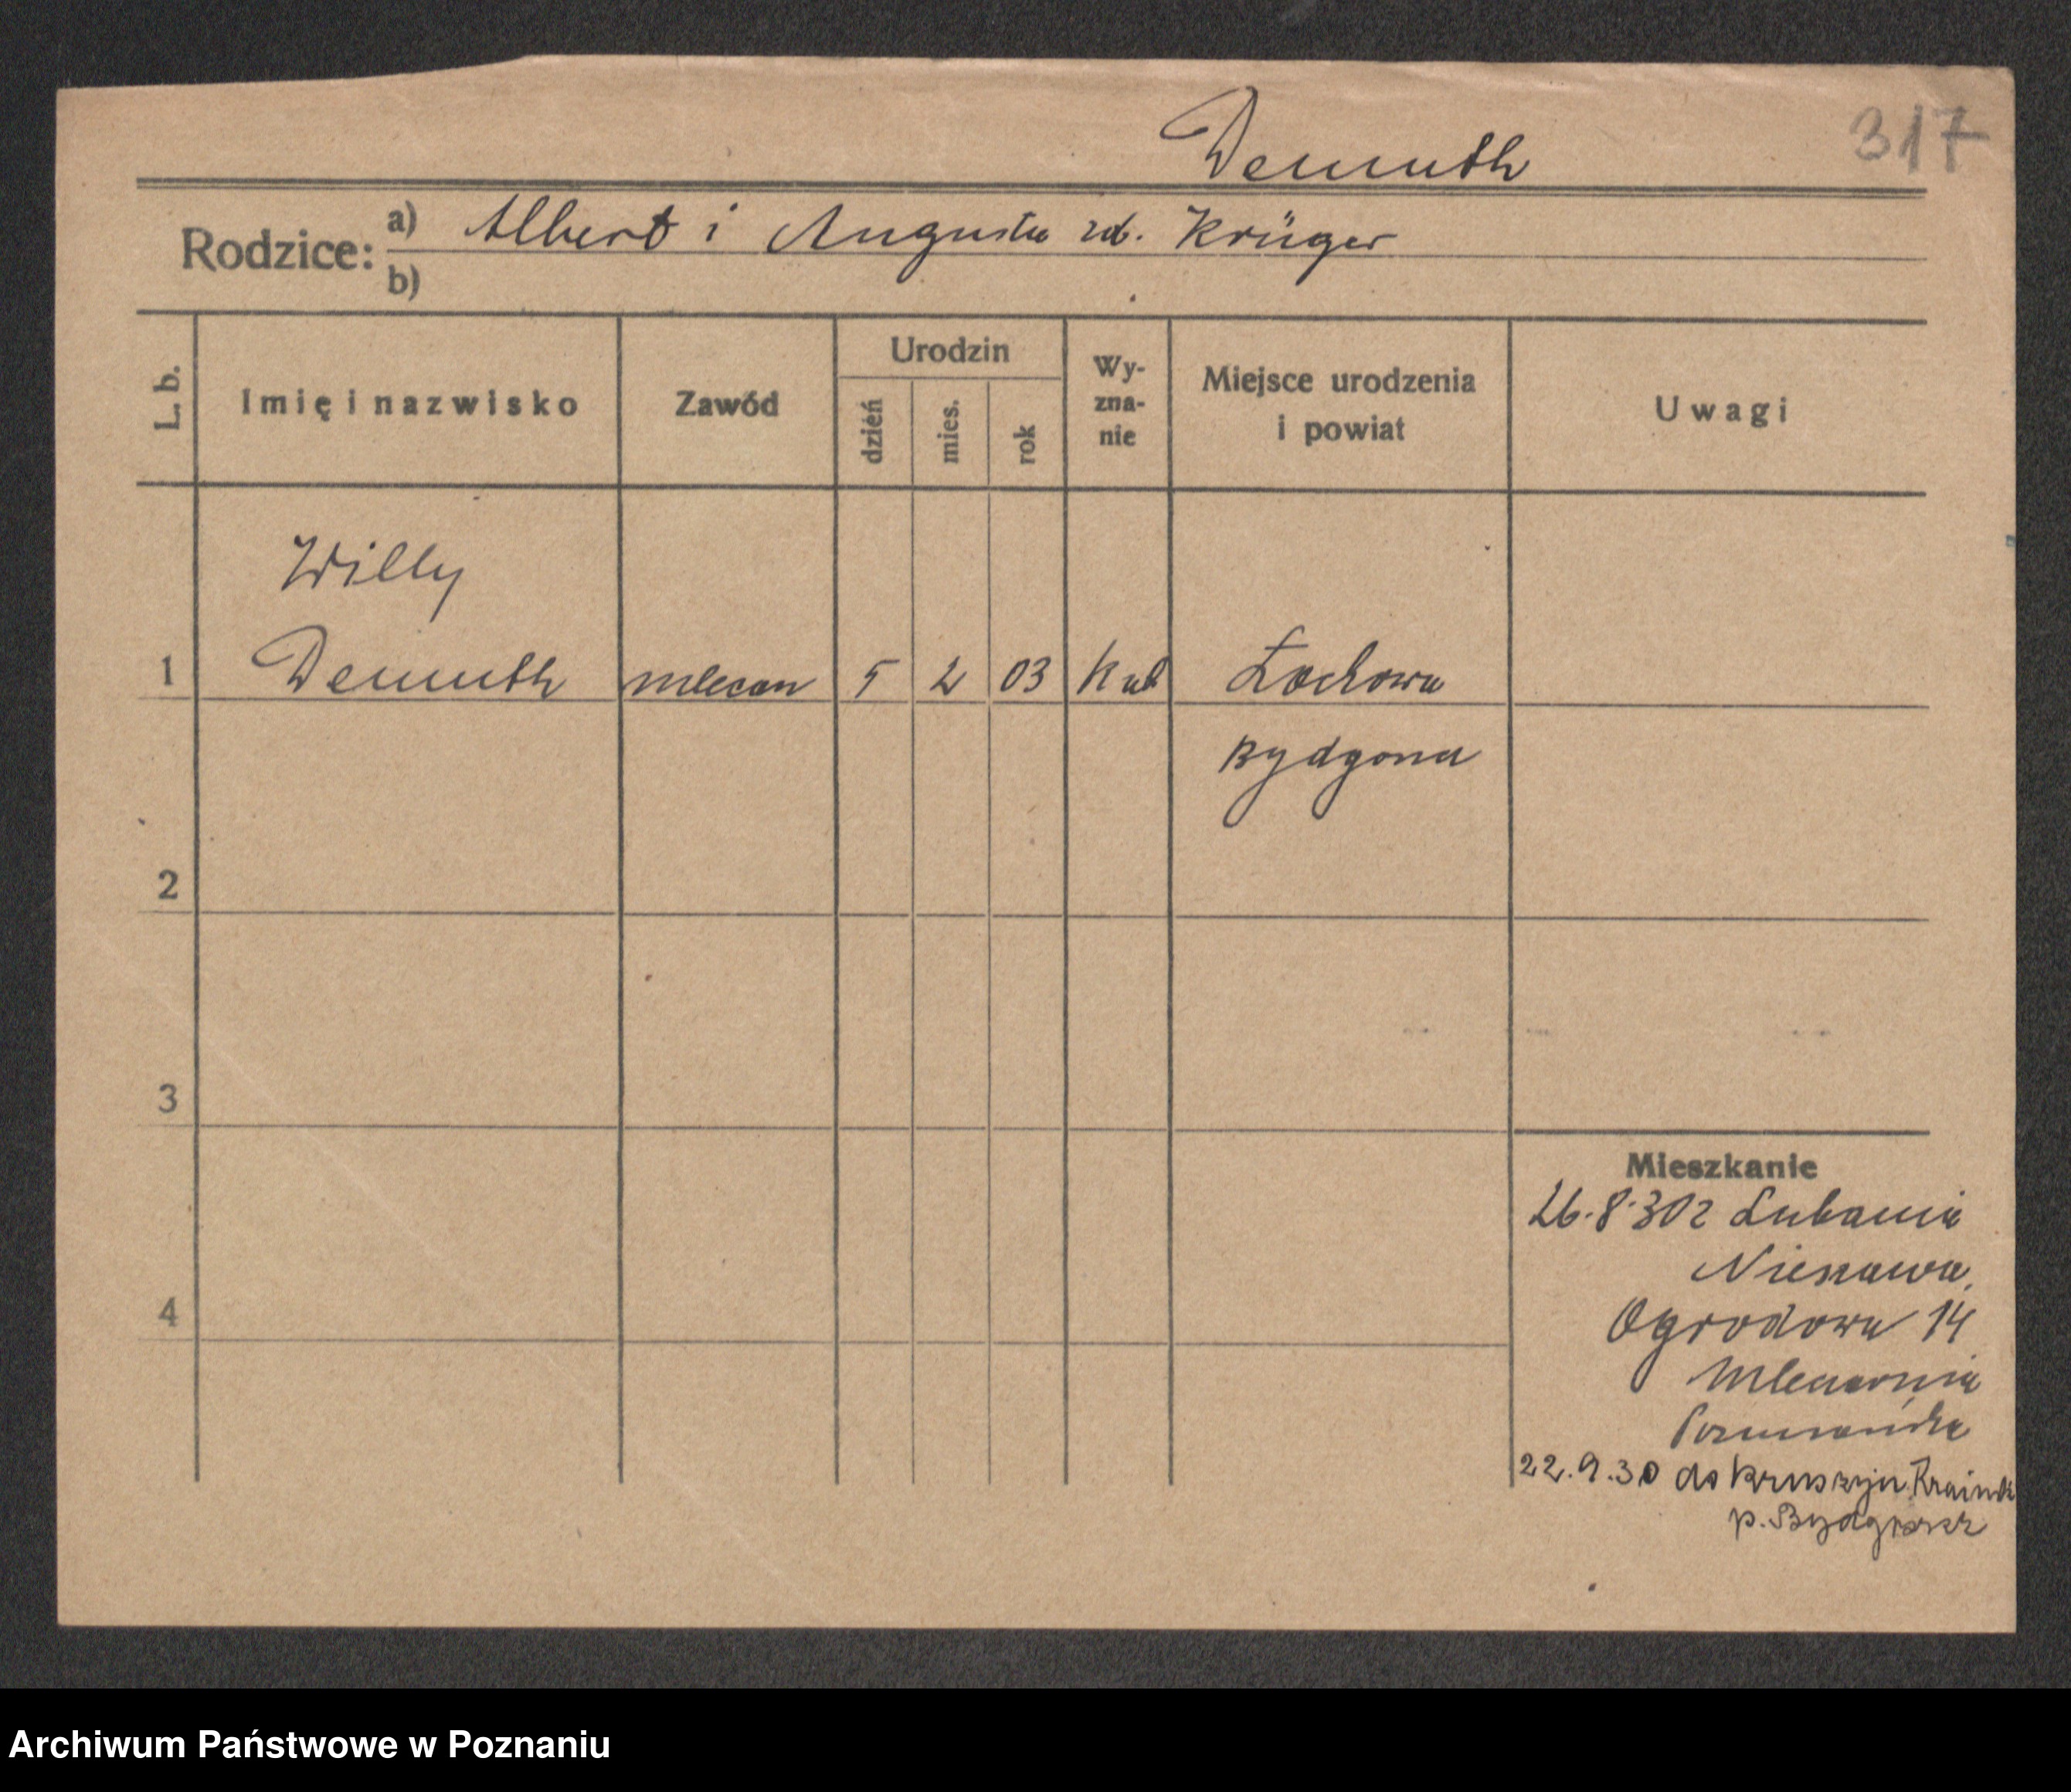 317
Demuth
Rodzice: a) Albert i Augusta zd. Krüger
b)
L. b. Imię i nazwisko Zawód Urodzin dzień mies. rok Wy-zna-nie Miejsce urodzenia i powiat Uwagi
Willy
1 Demuth mleczarz 5 2 03 Łochowo
Bydgoszcz
2
3
Mieszkanie
26.8.30 z Lubania
Nieszawa,
4 Ogrodowa 14
Mleczarnia
Poznańska
22.9.30 do Kruszyn Kraiński
p. Bydgoszcz
Archiwum Państwowe w Poznaniu